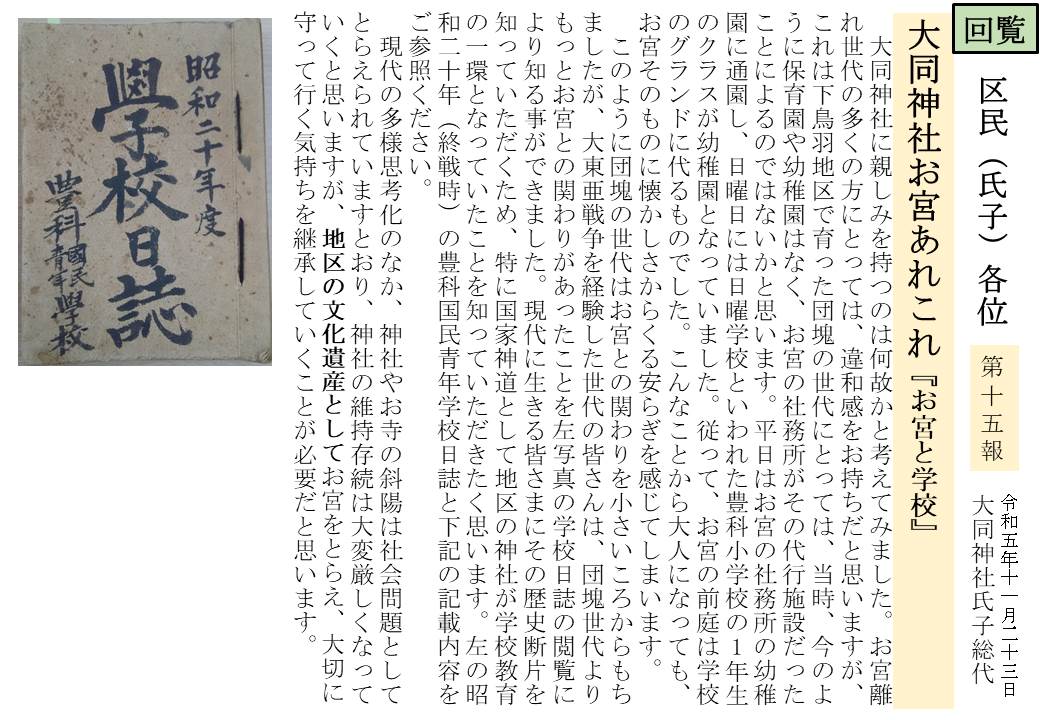 回覧
区民（氏子）各位
第十五報
令和五年十一月二十三日
大同神社氏子総代
大同神社お宮あれこれ『お宮と学校』
大同神社に親しみを持つのは何故かと考えてみました。お宮離
れ世代の多くの方にとっては、違和感をお持ちだと思いますが、
これは下鳥羽地区で育った団塊の世代にとっては、当時、今のよ
うに保育園や幼稚園はなく、お宮の社務所がその代行施設だった
ことによるのではないかと思います。平日はお宮の社務所の幼稚
園に通園し、日曜日には日曜学校といわれた豊科小学校の１年生
のクラスが幼稚園となっていました。従って、お宮の前庭は学校
のグランドに代るものでした。こんなことから大人になっても、
お宮そのものに懐かしさからくる安らぎを感じてしまいます。
このように団塊の世代はお宮との関わりを小さいころからもち
ましたが、大東亜戦争を経験した世代の皆さんは、団塊世代より
もっとお宮との関わりがあったことを左写真の学校日誌の閲覧に
より知る事ができました。現代に生きる皆さまにその歴史断片を
知っていただくため、特に国家神道として地区の神社が学校教育
の一環となっていたことを知っていただきたく思います。左の昭
和二十年（終戦時）の豊科国民青年学校日誌と下記の記載内容を
ご参照ください。
現代の多様思考化のなか、神社やお寺の斜陽は社会問題として
とらえられていますとおり、神社の維持存続は大変厳しくなって
いくと思いますが、地区の文化遺産としてお宮をとらえ、大切に
守って行く気持ちを継承していくことが必要だと思います。
昭和二十年度
學校日誌
豊科國民青年學校